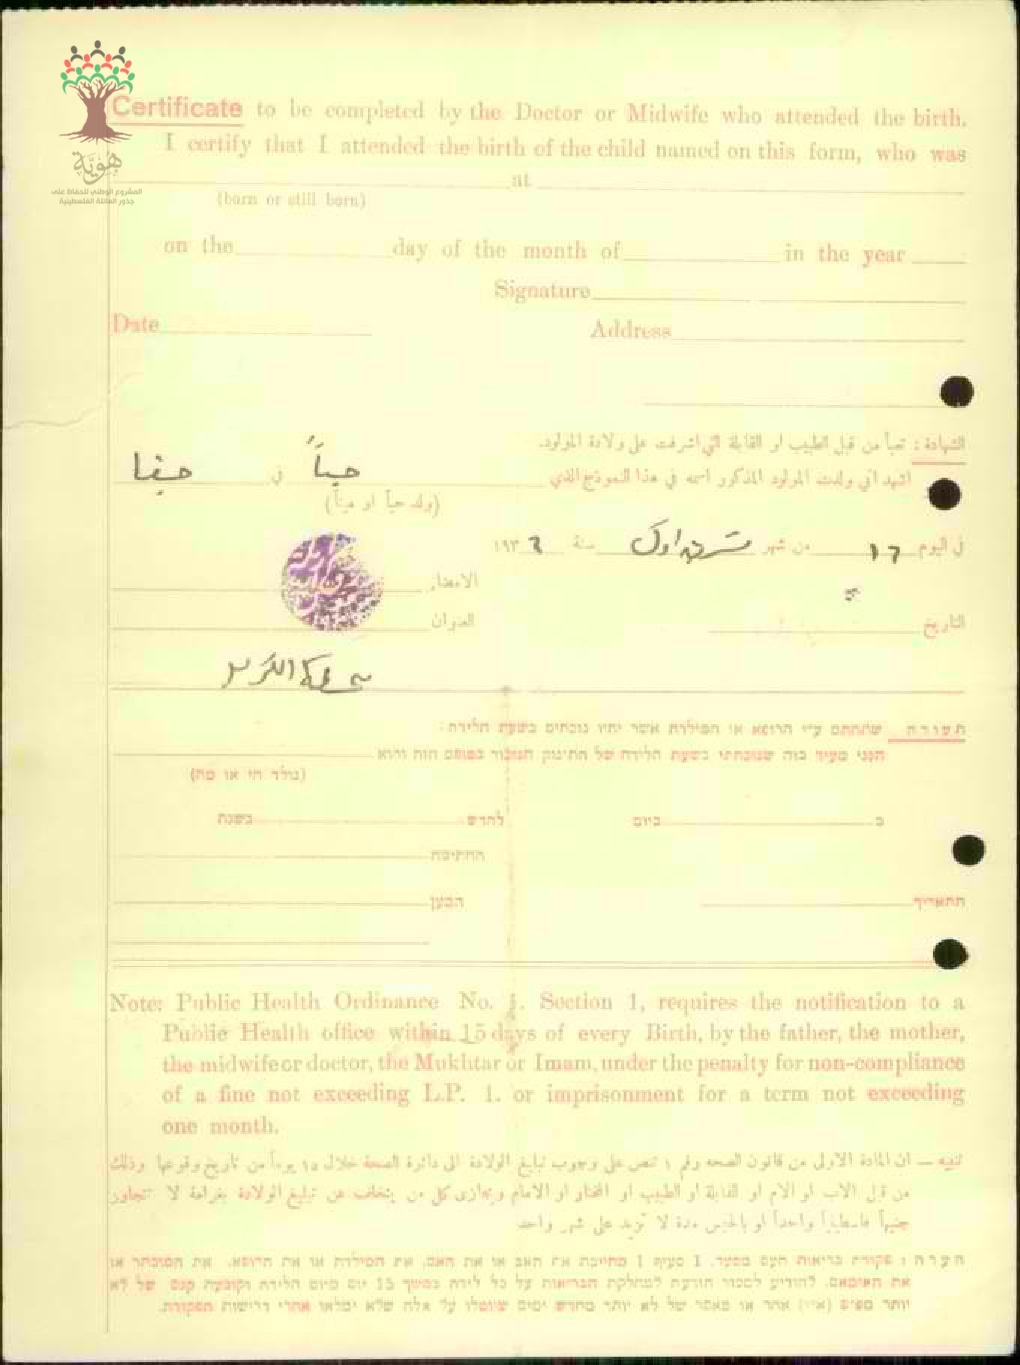 هُوِيَّة
المشروع الوطني للحفاظ على
جذور العائلة الفلسطينية
Certificate to be completed by the Doctor or Midwife who attended the birth.
I certify that I attended the birth of the child named on this form, who was
at
(born or still born)
on the day of the month of in the year
Signature
Date Address
الشهادة : تعبأ من قبل الطبيب او القابلة التي اشرفت على ولادة المولود.
اشهد اني ولدت المولود المذكور اسمه في هذا النموذج الذي حياً في حيفا
(ولد حياً او ميتاً)
في اليوم ١٦ من شهر تشرين اول سنة ١٩٣٦
الامضاء
التاريخ العنوان
תעודה שתחתם ע״י הרופא או המילדת אשר יהיו נוכחים בשעת הלידה:
הנני מעיד בזה שנוכחתי בשעת הלידה של התינוק הנזכר בטופס הזה והוא
(נולד חי או מת)
ב ביום לחדש בשנת
החתימה
התאריך המען
Note: Public Health Ordinance No. 1. Section 1, requires the notification to a
Public Health office within 15 days of every Birth, by the father, the mother,
the midwife or doctor, the Mukhtar or Imam, under the penalty for non-compliance
of a fine not exceeding L.P. 1. or imprisonment for a term not exceeding
one month.
تنبيه — ان المادة الاولى من قانون الصحه رقم ١ تنص على وجوب تبليغ الولادة الى دائرة الصحة خلال ١٥ يوماً من تاريخ وقوعها وذلك
من قبل الاب او الام او القابلة او الطبيب او المختار او الامام ويجازى كل من يتخلف عن تبليغ الولادة بغرامة لا تتجاوز
جنيهاً فلسطينياً واحداً او بالحبس مدة لا تزيد على شهر واحد
הערה : פקודת בריאות העם מספר. 1 סעיף 1 מחייבת את האב או את האם, את המילדת או את הרופא, את המוכתר או
את האימאם, להודיע למשרד הודעת למחלקת הבריאות על כל לידה במשך 15 יום מיום הלידה וקובעת קנס של לא
יותר מפונט (לא״י) אחד או מאסר של לא יותר מחדש ימים שיוטלו על אלה שלא ימלאו אחרי דרישות הפקודה.